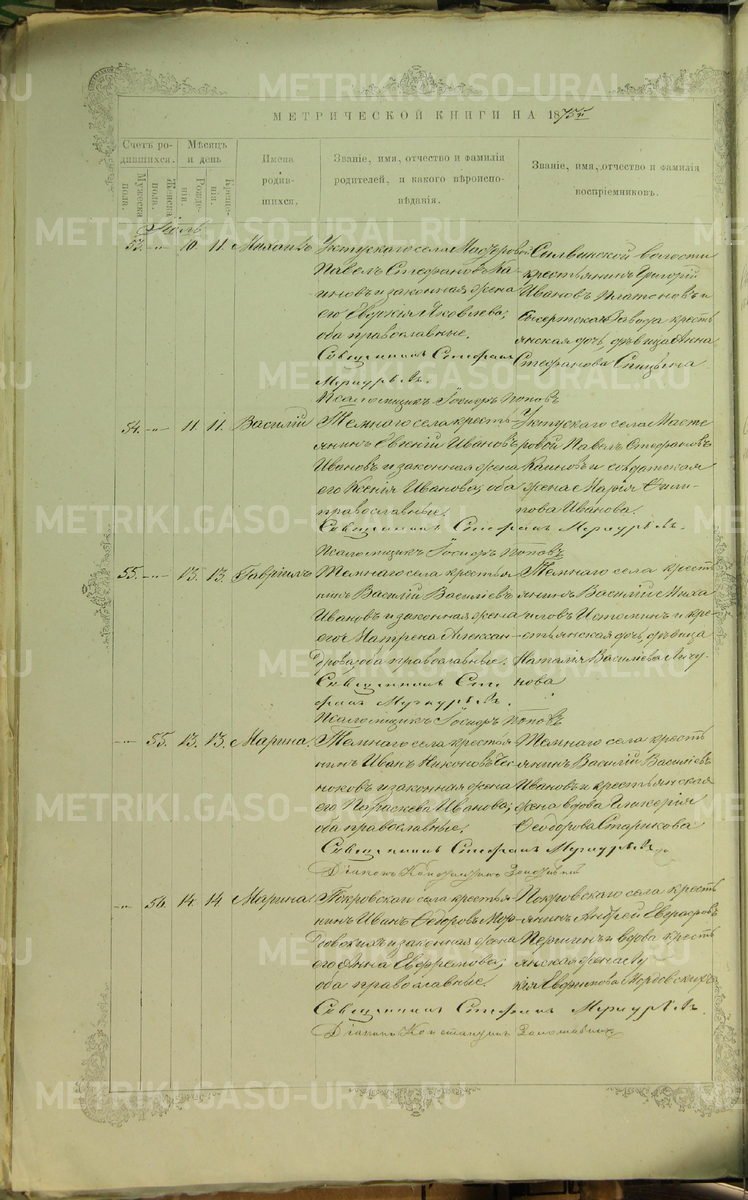 METRIKI.GASO-URAL.RU
МЕТРИЧЕСКОЙ КНИГИ НА 1875 г
Счетъ ро-
дившихся.
Мужеска
пола.
Женска
пола.
Мѣсяцъ
и день
Рожде-
нія.
Креще-
нія.
Имена
родив-
шихся.
Званіе, имя, отчество и фамилія
родителей, и какого вѣроиспо-
вѣданія.
Званіе, имя, отчество и фамилія
воспріемниковъ.
10 11. Михаилъ
Уктускаго села
Павелъ Стефановъ
и законная жена
его Евдокія Яковлева;
оба православные.
Священникъ Стефанъ
Псаломщикъ Поповъ
волости
крестьянинъ Григорій
Ивановъ Платоновъ и
завода кресть
янская дочь дѣвица Анна
Стефанова
54. 11. 11. Василій
Темнаго села кресть-
янинъ Евгеній Ивановъ
Ивановъ и законная жена
его Ксенія Иванова; оба
православные.
Священникъ Стефанъ
Псаломщикъ Поповъ
Уктускаго села Масте
ровой Павелъ Стефановъ
и солдатская
жена Марія
Иванова.
55. 13. 13. Гавріилъ
Темнаго села крестья
нинъ Василій Василіевъ
Ивановъ и законная жена
его Матрена Алексан-
дрова; оба православные.
Священникъ Сте
фанъ
Псаломщикъ Поповъ
Темнаго села крест
янинъ Василій Миха
иловъ Истоминъ и кре-
стьянская дочь дѣвица
Наталія Василіева
нова
55. 13. 13. Марина
Темнаго села крестья
нинъ Иванъ Никоновъ
и законная жена
его Параскева Иванова;
оба православные.
Священникъ Стефанъ
Діаконъ Константинъ
Темнаго села кресть
янинъ Василій Василіевъ
Ивановъ и крестьянская
жена вдова Гликерія
Ѳеодорова Старикова
56. 14. 14. Марина
Покровскаго села крестья
нинъ Иванъ Ѳедоровъ Мор-
довскихъ и законная жена
его Анна Евфремова;
оба православные.
Священникъ Стефанъ
Діаконъ Константинъ
Покровскаго села кресть
янинъ Андрей
Першинъ и вдова кресть
янская жена Лу
кія Евфимова Мордовскихъ